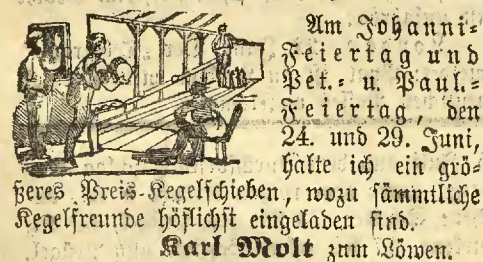 Am Johanni=
Feiertag und
Pet.= u. Paul.=
Feiertag, den
24. und 29. Juni,
halte ich ein grö=
ßeres Preis=Kegelschieben, wozu sämmtliche
Kegelfreunde höflichst eingeladen sind.
Karl Molt zum Löwen.